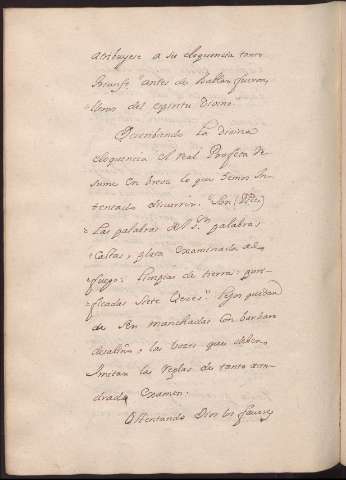 atribuyese a su eloquencia tanto
antes de hablar fueron
llenos del espiritu Divino
Descrubiendo la divina
eloquencia el real Profeta Re
sume en breve lo que temos in
tentado discurrir. Son (Dice)
Las palabras del S.or palabras
Castas, plata examinada al
fuego: limpias de tierra: puri
ficadas siete veces. lejos puedan
de ser manchadas con barbaro
desaliño, las voces que deben
Imitar las reglas de tanto acri
drado examen.
Ostentando Dios los favores